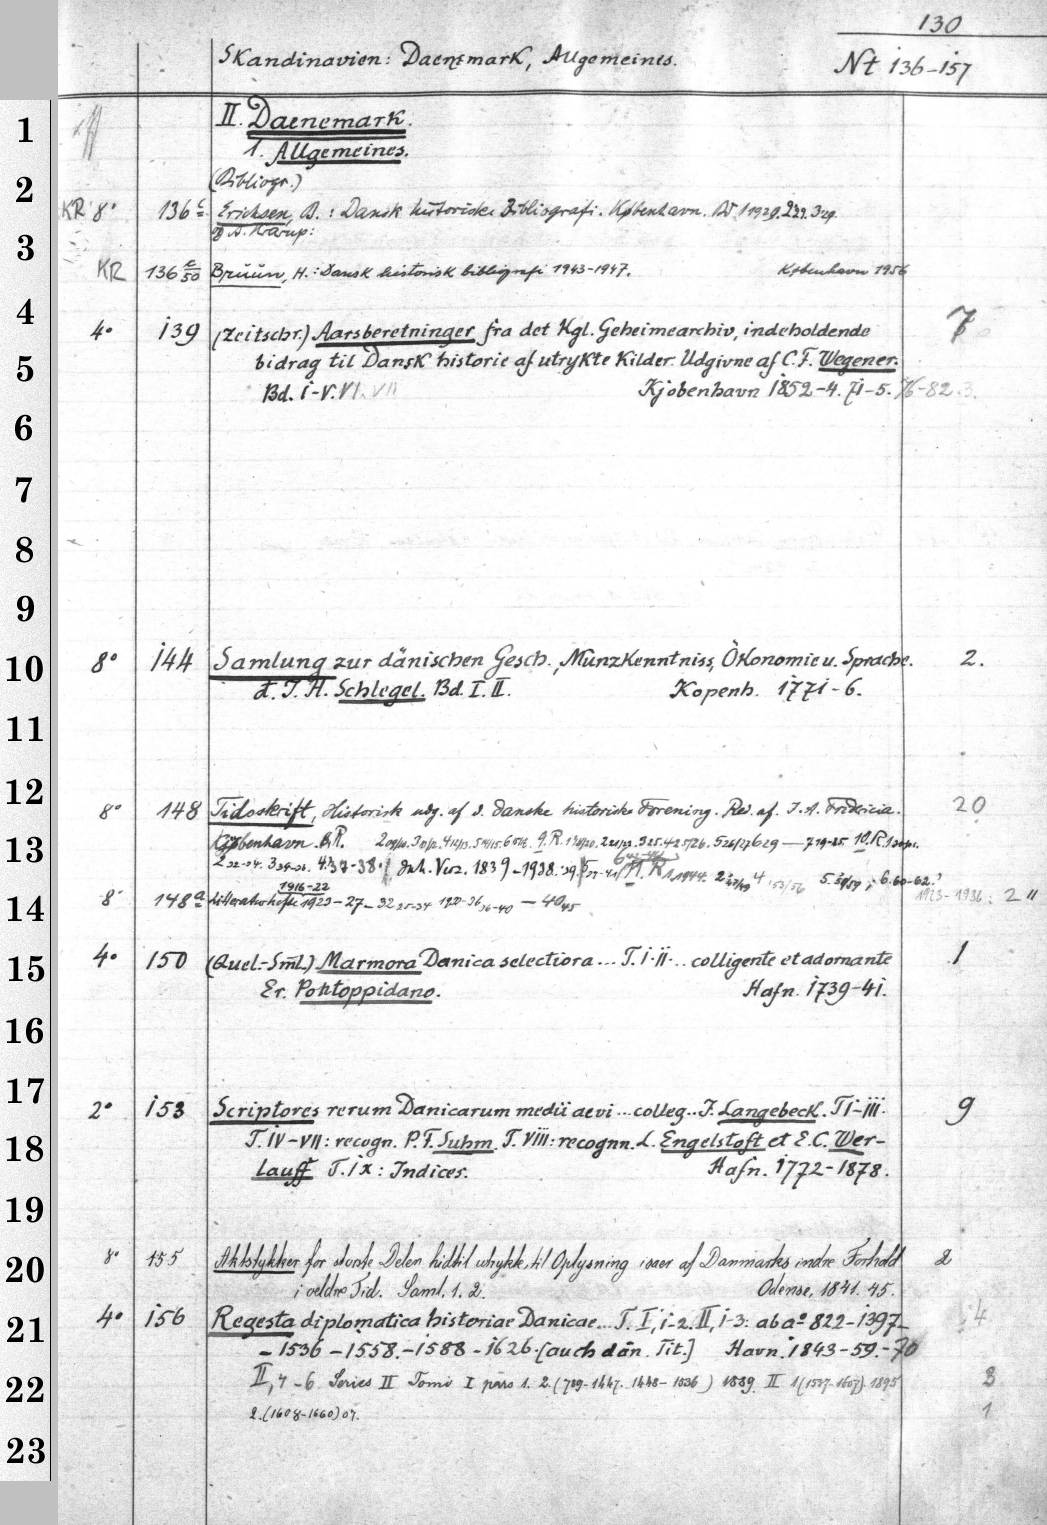 130
Skandinavien: Daenemark, Allgemeines.
Nt 136-157
II. Daenemark.
1. Allgemeines.
(Bibliogr.)
KR 8° 136 c Erichsen, B.: Dansk historiske Bibliografi. København. Bd 1 1929. 2 29. 3 29.
og A. Krarup:
KR 136 c/50 Bruun, H.: Dansk historisk bibliografi 1943-1947. København 1956
4° 139 (Zeitschr.) Aarsberetninger fra det Kgl. Geheimearchiv, indeholdende 7
bidrag til Dansk historie af utrykte Kilder. Udgivne af C. F. Wegener.
Bd. I-V. VI. VII Kjöbenhavn 1852-4. 71-5. 76-82.3.
8° 144 Samlung zur dänischen Gesch., Münzkenntniss, Ökonomie u. Sprache. 2.
d. J. H. Schlegel. Bd. I. II. Kopenh. 1771-6.
8° 148 Tidsskrift, Historisk udg. af d. danske historiske Forening. Red. af. J. A. Fridericia. 20
København. 8.R. 9.R. 10.R.
2 32-34. 3 34-36. 4. 37-38. Inh. Verz. 1839-1938. '39. 11. R. 1 1944. 6. 60-62.
8° 148a Litteraturhefte 1916-22 1923-27- 32 25-34 - 40 45 1923-1936: 2 "
4° 150 (Quel.-Sml.) Marmora Danica selectiora... T. I-II... colligente et adornante 1
Er. Pontoppidano. Hafn. 1739-41.
2° 153 Scriptores rerum Danicarum medii aevi... colleg.. J. Langebeck. T I-III. 9
T. IV-VII: recogn. P. F. Suhm. T. VIII: recognn. L. Engelstoft et E. C. Wer-
lauff T. IX: Indices. Hafn. 1772-1878.
8° 155 Aktstykker for største Delen hidtil utrykte, til Oplysning isaer af Danmarks indre Forhold 2
i aeldre Tid. Saml. 1. 2. Odense. 1841. 45.
4° 156 Regesta diplomatica historiae Danicae... T. I, 1-2. II, 1-3: ab aº 822-1397- 4
-1536-1558.-1588-1626. [auch dän. Tit.] Havn. 1843-59.-70
II, 4-6 Series II Tomi I pars 1. 2. (789-1447. 1448-1536) 1889. II 1 (1537-1607). 1895 3
2. (1608-1660) 07. 1
1
2
3
4
5
6
7
8
9
10
11
12
13
14
15
16
17
18
19
20
21
22
23